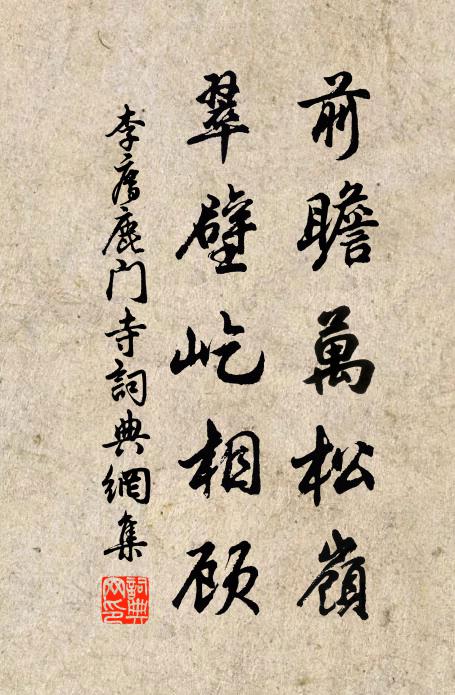 前瞻萬松嶺
翠壁屹相顾
李廌鹿门寺詞典網集
詞典
网印